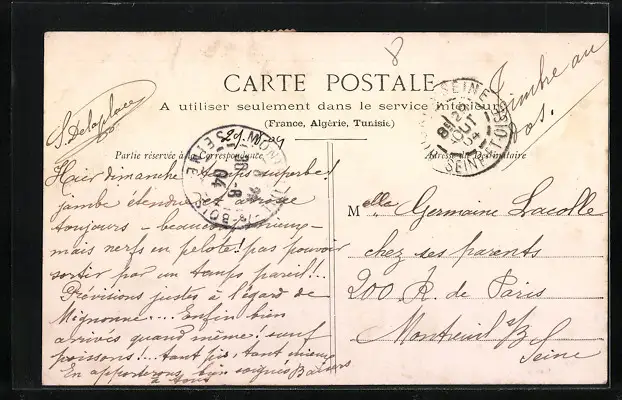 CARTE POSTALE
A utiliser seulement dans le service intérieur
(France, Algérie, Tunisie)
Partie réservée à la Correspondance
Adresse du Destinataire
S. Delaplace
Timbre au
dos.
29.
SEINE
AOUT
04
Hier dimanche temps superbe!
jambe étendue et
toujours - beaucoup mieux -
mais nerfs en pelote! pas pouvoir
sortir par un temps pareil!..
Prévisions justes à l'égard de
Mignonne.... Enfin bien
arrivés quand même! sauf
poissons!... tant pis, tant mieux
En apporterons, bien soignés Baisers
à tous
Melle Germaine Lacolle
chez ses parents
200 R. de Paris
Montreuil s/B
Seine